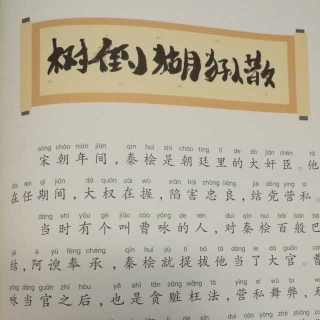 树倒猢狲散
sòng cháo nián jiān qín huì shì cháo tíng lǐ de dà jiān chén tā
宋朝年间，秦桧是朝廷里的大奸臣。他
zài rèn qī jiān dà quán zài wò xiàn hài zhōng liáng jié dǎng yíng sī
在任期间，大权在握，陷害忠良，结党营私。
dāng shí yǒu gè jiào cáo yǒng de rén duì qín huì bǎi bān bā
当时有个叫曹咏的人，对秦桧百般巴
jié ē yú fèng chéng qín huì jiù tí bá tā dāng le dà guān cáo
结，阿谀奉承，秦桧就提拔他当了大官。曹
yǒng dāng guān zhī hòu yě shì tān zāng wǎng fǎ yíng sī wǔ bì wú
咏当官之后，也是贪赃枉法，营私舞弊，无